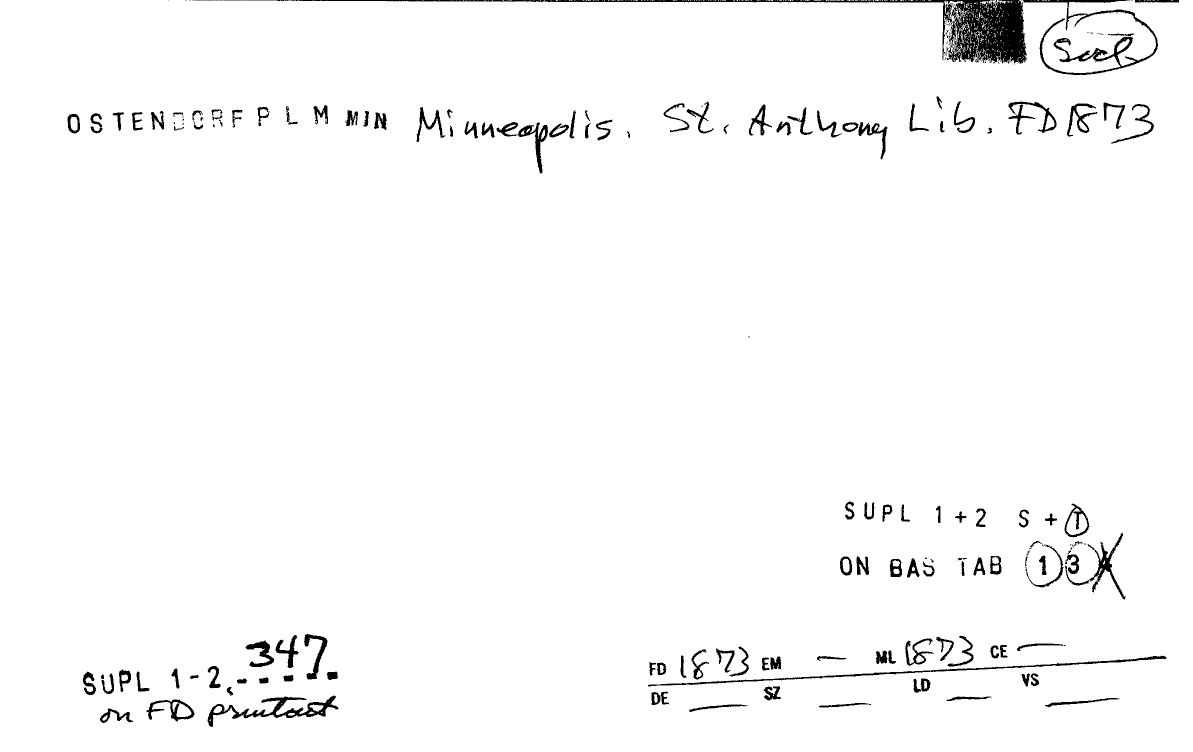 Soc
OSTENDORF P L M MIN Minneapolis. St. Anthony Lib. FD 1873
SUPL 1+2 S + T
ON BAS TAB 1 3
SUPL 1-2, 347
on FD printout
FD 1873 EM — ML 1873 CE —
DE — SZ — LD — VS —